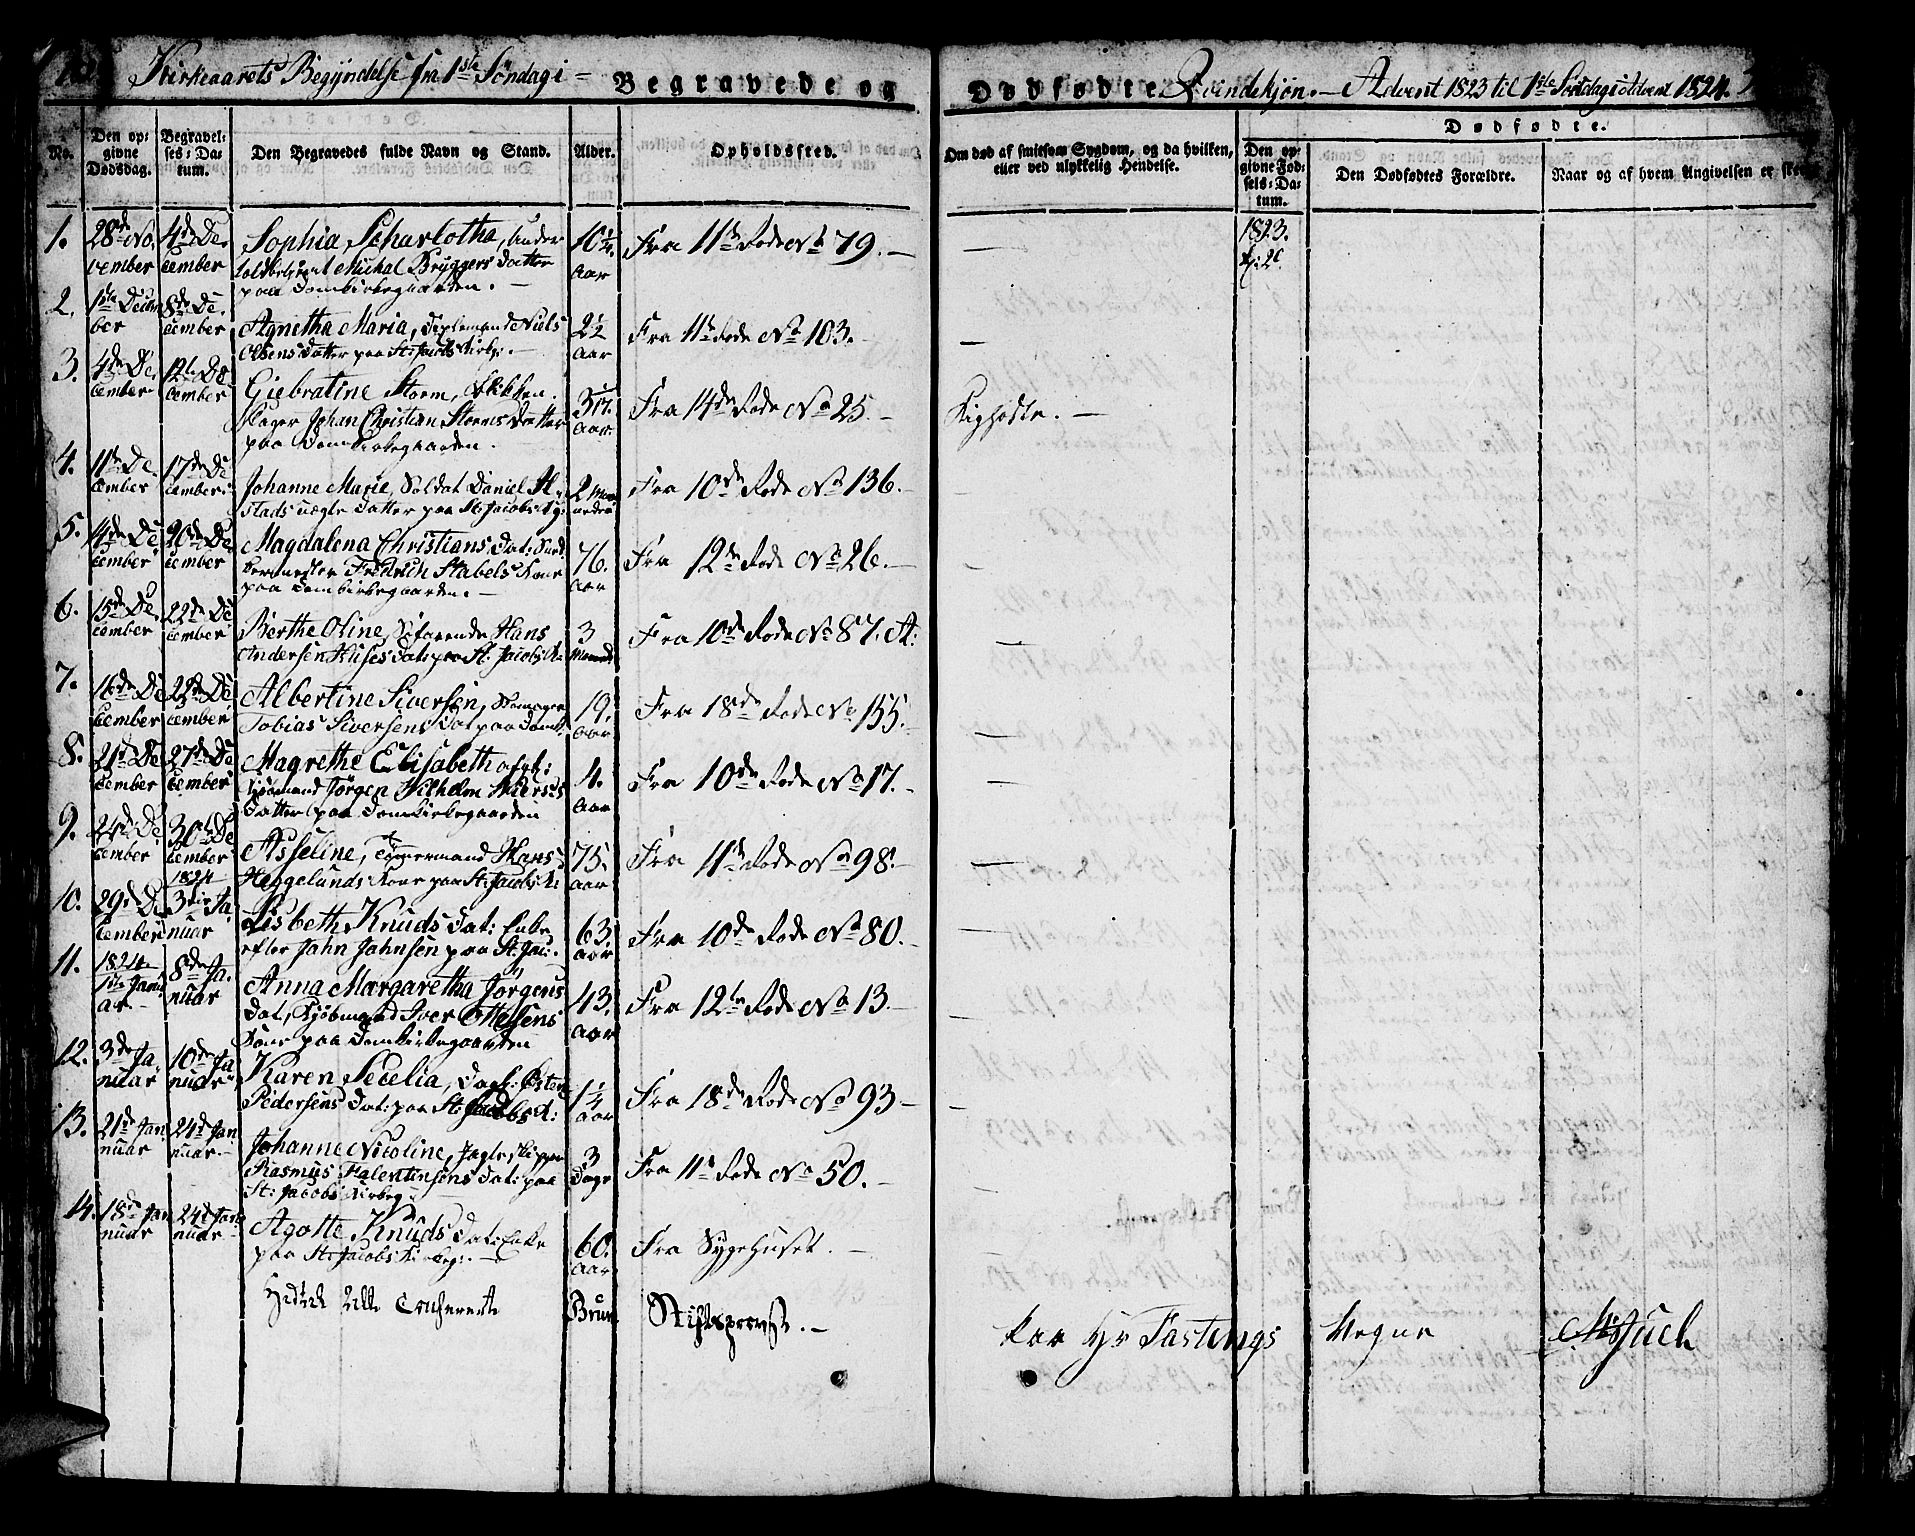 Kirkeaarets Begÿndelse fra 1ste Söndag i = Begravede og Dødfødte. Qvindekjøn. — Advent 1823 til 1ste Søndag i Advent 1824.
No.
Den op=
givne
Dødsdag.
Begravel=
ses=Da=
tum.
Den Begravedes fulde Navn og Stand.
Alder.
Opholdssted.
Om død af smitsom Sygdom, og da hvilken,
eller ved ulykkelig Hendelse.
Dødfødte.
Den op=
givne Fød=
sels=Da=
tum.
Den Dødfødtes Forældre.
Naar og af hvem Angivelsen er
1823.
1.
28de No.
vember
4de De.
cember
Sophia Scharlotha, Under
Michal Bryggers Datter
paa Domkirkegaarden. —
10 1/4
Aar
Fra 11te Rode No 79. —
2.
1ste Decem
ber
8de De.
cember
Agnetha Maria, Niels
Olsens Datter paa St: Jacobs Kirkg: —
2 1/2
Aar
Fra 11te Rode No 103. —
3.
4de De.
cember
12te De
cember
Giebratine Storm, Skibken.
Johan Christian Storms Datter
paa Domkirkegaarden.
Aar.
Fra 14de Rode No 25. —
Kighoste. —
4.
11te De.
cember
17de De
cember.
Johanne Marie, Soldat Daniel
stads uægte Datter paa St: Jacobs Kg:
2 Maa
neder
Fra 10de Rode No 136. —
5.
14de De
cember
20de De
cember
Magdalena Christians Dat:
Fredrich Stabels Kone
paa Domkirkegaarden. —
76.
Aar
Fra 12de Rode No 26. —
6.
15de De
cember
22de De
cember
Berthe Oline, Søfarende Hans
Andersen Huses Dat: paa St: Jacobs K:
3
Maand
Fra 10de Rode No 87. A:
7.
16de De
cember
22de De
cember
Albertine Siversen, Skomager
Tobias Siversens Dat paa Domk:
19.
Aar
Fra 18de Rode No 155.
8.
21de De
cember
27de De
cember
Magrethe Elisabeth afgk:
Kjøbmand Jørgen Wilhelm
Datter paa Domkirkegaarden
4.
Aar
Fra 10de Rode No 17. —
9.
24de De
cember
30te De
cember
Asseline, Tømmermand Hans
Heggelunds Kone paa St: Jacobs K:
75.
Aar
Fra 11te Rode No 98. —
10.
29de De
cember
1824
3die Ja
nuar
Lisbeth Knuds Dat: Enke
efter Jahn Jahnsen paa St: Jac:
63.
Aar
Fra 10de Rode No 80. —
11.
1824
1ste Janu
ar —
8de Ja.
nuar
Anna Margaretha Jørgens
Dat, Kjøbmand Iver Ottesens
Kone paa Domkirkegaarden
43.
Aar
Fra 12te Rode No 13. —
12.
3de Ja
nuar
10de Ja
nuar
Karen Secelia, Dagk:
Pedersens Dat: paa St: Jacobs K:
1 1/4
Aar
Fra 18de Rode No 93 —
13.
21de Jan
nuar
24de Jan
nuar. —
Johanne Nicoline, Jagteskipper
Rasmus Falentinsens Dat: paa
St: Jacobs Kirkeg: —
3
Dage
Fra 11te Rode No 50. —
14.
18de Jan
nuar
24de Jan
nuar
Agotte Knuds Dat: Enke
paa St: Jacobs Kirkeg: —
60.
Aar
Fra Sygehuset. —
Brun
Stiftsprovst. —
paa Hr Fastings Vegne
Juell